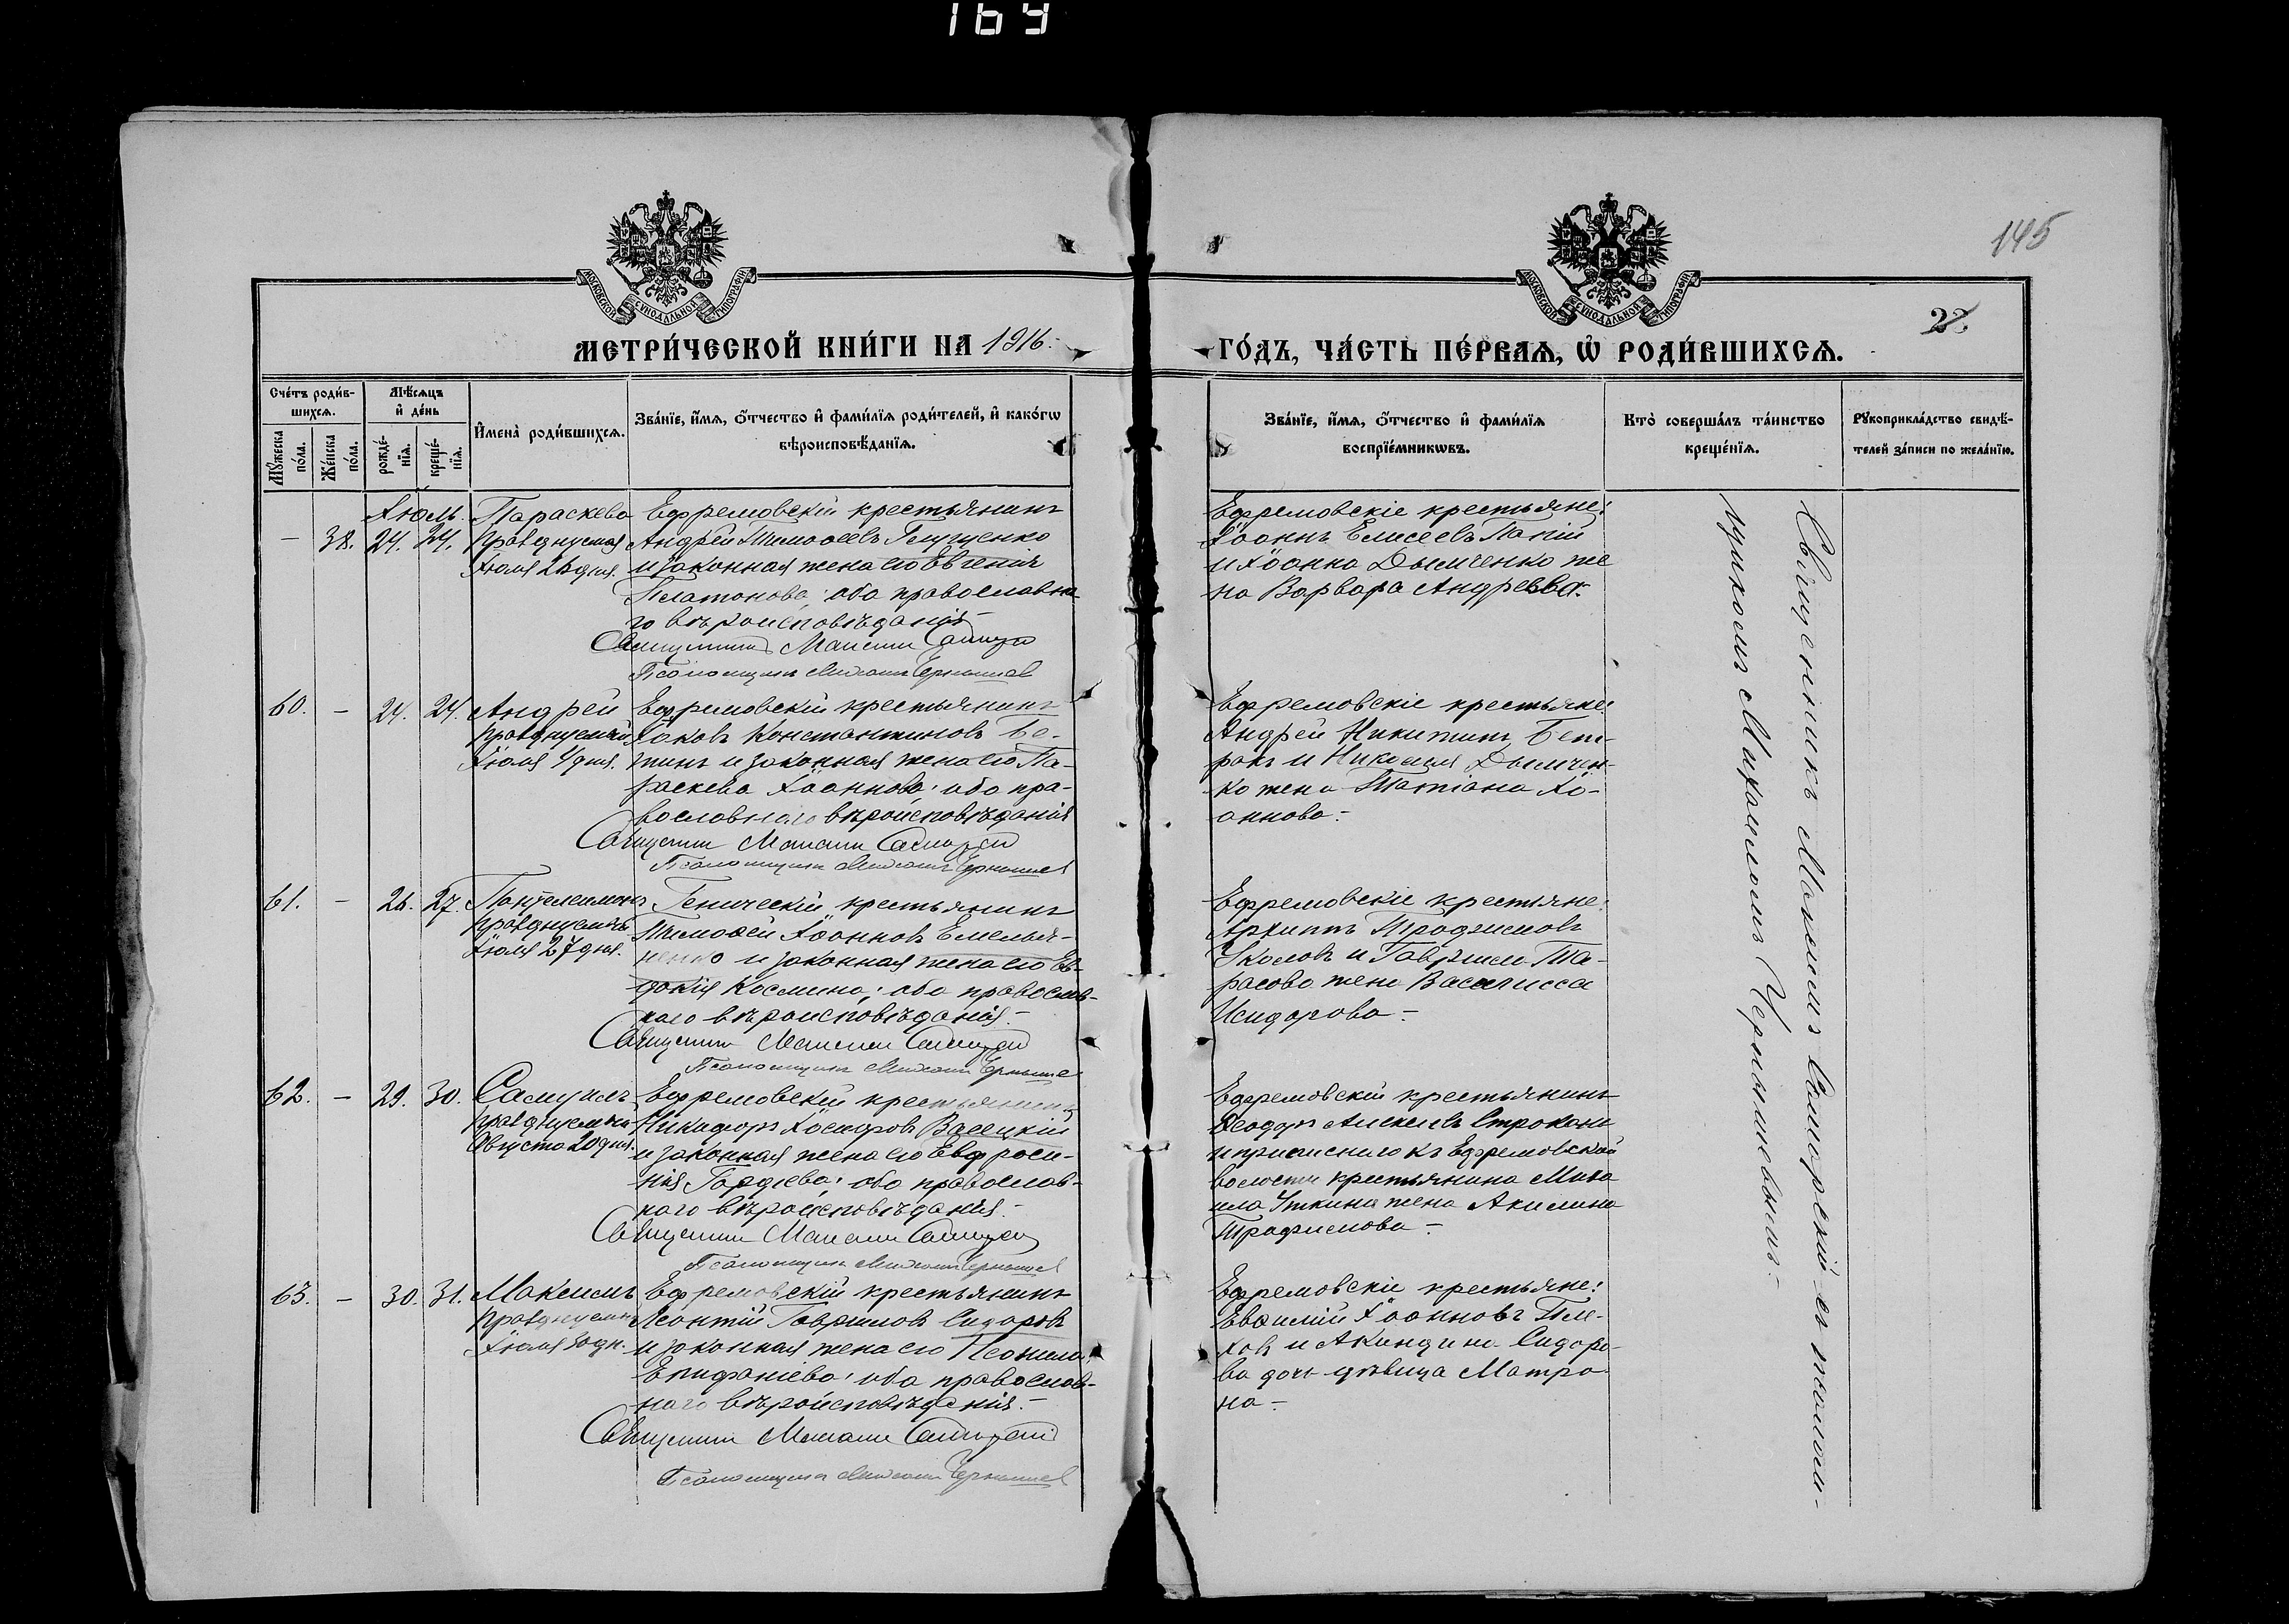 169
145
22.
МОСКОВСКОЙ СѴНОДАЛЬНОЙ ТИПОГРАФІИ
МОСКОВСКОЙ СѴНОДАЛЬНОЙ ТИПОГРАФІИ
МЕТРИ́ЧЕСКОЙ КНИ́ГИ НА 1916.
ГО́ДЪ, ЧА́СТЬ ПЕ́РВАѦ, Ѡ҆ РОДИ́ВШИХСѦ.
Сче́тъ роди́в-
шихсѧ.
Мꙋ́жеска по́ла.
Же́нска по́ла.
Мѣ́сѧцъ
и҆ де́нь
рожде́-
нїѧ.
креще́-
нїѧ.
И҆мена̀ роди́вшихсѧ.
Зва́нїе, и҆́мѧ, ѻ҆́тчество и҆ фами́лїѧ роди́телей, и҆ како́гѡ
вѣроисповѣ́данїѧ.
Зва́нїе, и҆́мѧ, ѻ҆́тчество и҆ фами́лїѧ
воспрїе́мникѡвъ.
Кто̀ соверша́лъ та́инство
креще́нїѧ.
Рꙋкоприкла́дство свидѣ́-
телей за́писи по жела́нїю.
Іюль.
— 38. 24. 24.
Параскева
празднуемая
Іюля 26 дня.
Ефремовскій крестьянинъ
Андрей Тимоѳеевъ Глущенко
и законная жена его Евгенія
Платонова; оба православна
го вѣроисповѣданія —
Священникъ Максимъ Саморскій
Псаломщикъ Михаилъ Чернышев
Ефремовскіе крестьяне:
Іоаннъ Елисеевъ Папій
и Іоанна Дымченко же
на Варвара Андреева.
60. — 24. 24.
Андрей
празднуемый
Іюля 4 дня.
Ефремовскій крестьянинъ
Іаковъ Константиновъ Бе-
тинъ и законная жена его Па-
раскева Іоаннова; оба пра-
вославнаго вѣроисповѣданія
Священникъ Максимъ Саморскій
Псаломщикъ Михаилъ Чернышев
Ефремовскіе крестьяне:
Андрей Никитинъ Бет-
ракъ и Николая Дымчен-
ко жена Татіана Іо-
аннова. —
61. — 26. 27.
Пантелеимонъ
празднуемый
Іюля 27 дня.
Геническій крестьянинъ
Тимоѳей Іоанновъ Емелья-
ненко и законная жена его Ев-
докія Космина; оба православ-
наго вѣроисповѣданія. —
Священникъ Максимъ Саморскій
Псаломщикъ Михаилъ Чернышев
Ефремовскіе крестьяне:
Архипъ Трофимовъ
Уколовъ и Гавриила Та-
расова жена Василисса
Исидорова —
62. — 29. 30.
Самуилъ
празднуемый
Августа 20 дня.
Ефремовскій крестьянинъ
Никифоръ Іосифовъ Васецкій
и законная жена его Евфроси-
нія Гордіева; оба православ-
наго вѣроисповѣданія. —
Священникъ Максимъ Саморскій
Псаломщикъ Михаилъ Чернышев
Ефремовскій крестьянинъ
Ѳеодоръ Алексіевъ Строкань
и приписнаго къ Ефремовской
волости крестьянина Миха
ила Уткина жена Акилина
Трофимова —
63. — 30. 31.
Максимъ
празднуемый
Іюля 30 дн.
Ефремовскій крестьянинъ
Леонтій Гавриловъ Сидоровъ
и законная жена его Неонила
Епифаніева; оба православ-
наго вѣроисповѣданія. —
Священникъ Максимъ Саморскій
Псаломщикъ Михаилъ Чернышев
Ефремовскіе крестьяне:
Евѳимій Іоанновъ Пле-
ховъ и Акиндина Сидоро-
ва дочь дѣвица Матро-
на —
Священникъ Максимъ Саморскій съ псалом-
щикомъ Михаиломъ Чернышевымъ. —